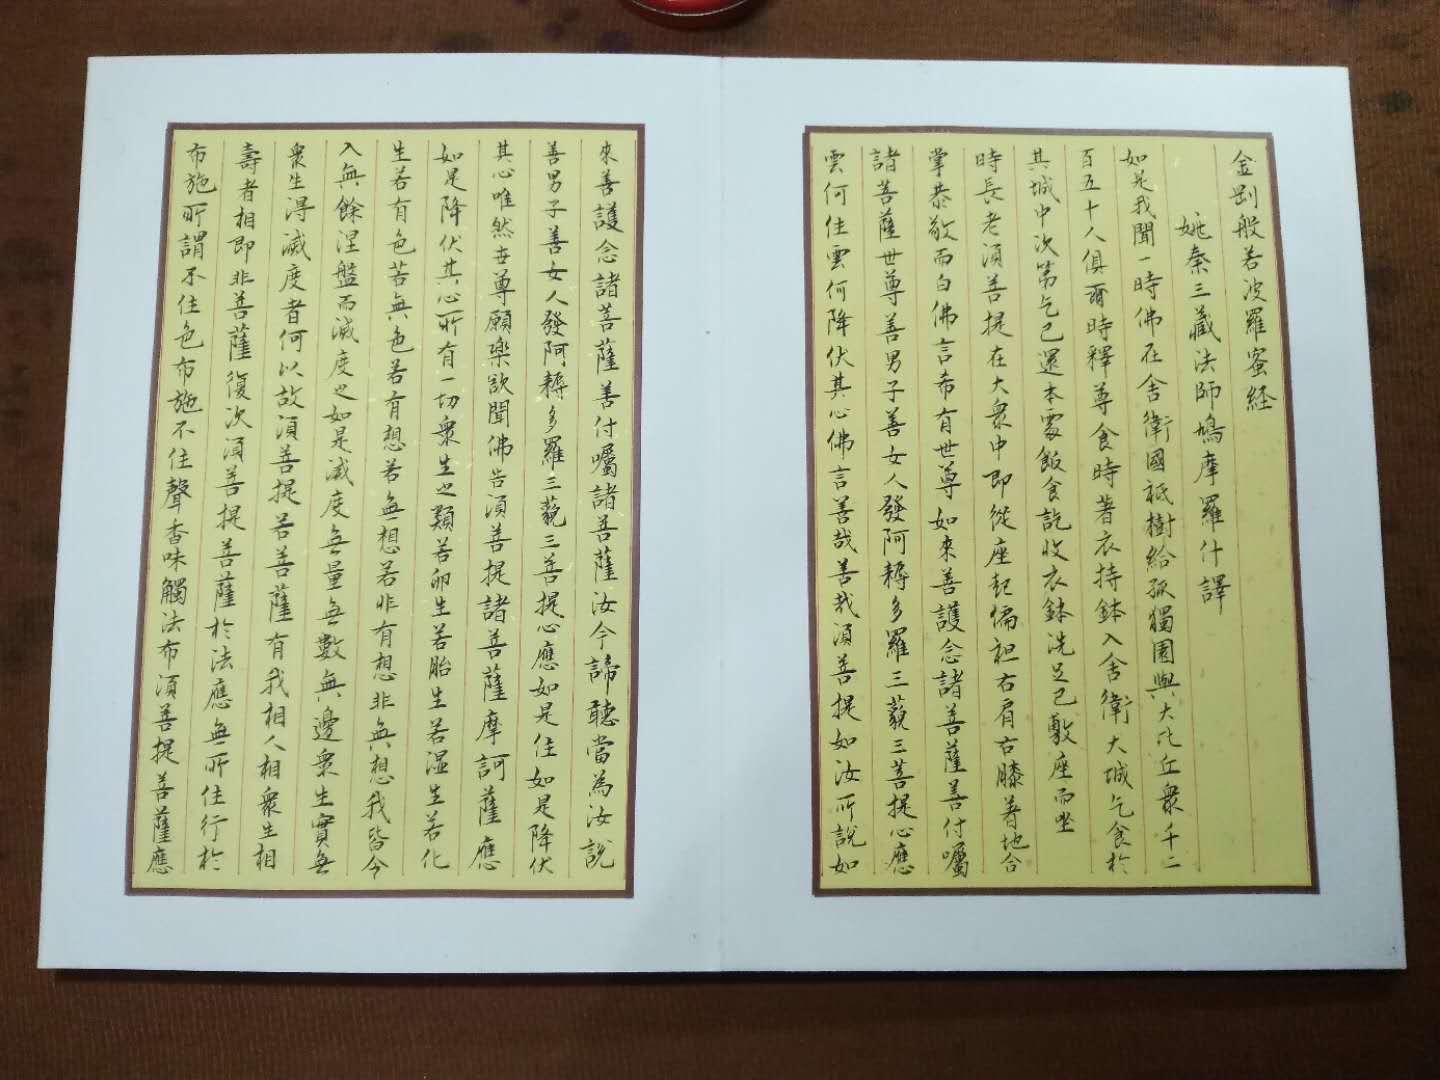 金剛般若波羅蜜经
姚秦三藏法師鳩摩羅什譯
如是我聞一時佛在舍衛國祇樹給孤獨園與大比丘衆千二
百五十人俱爾時釋尊食時著衣持鉢入舍衛大城乞食於
其城中次第乞已還本處飯食訖收衣鉢洗足已敷座而坐
時長老須菩提在大衆中即從座起偏袒右肩右膝著地合
掌恭敬而白佛言希有世尊如來善護念諸菩薩善付囑
諸菩薩世尊善男子善女人發阿耨多羅三藐三菩提心應
雲何住雲何降伏其心佛言善哉善哉須菩提如汝所說如
來善護念諸菩薩善付囑諸菩薩汝今諦聽當為汝說
善男子善女人發阿耨多羅三藐三菩提心應如是住如是降伏
其心唯然世尊願樂欲聞佛告須菩提諸菩薩摩訶薩應
如是降伏其心所有一切衆生之類若卵生若胎生若濕生若化
生若有色若無色若有想若無想若非有想非無想我皆令
入無餘涅盤而滅度之如是滅度無量無數無邊衆生實無
衆生得滅度者何以故須菩提若菩薩有我相人相衆生相
壽者相即非菩薩復次須菩提菩薩於法應無所住行於
布施所謂不住色布施不住聲香味觸法布須菩提菩薩應